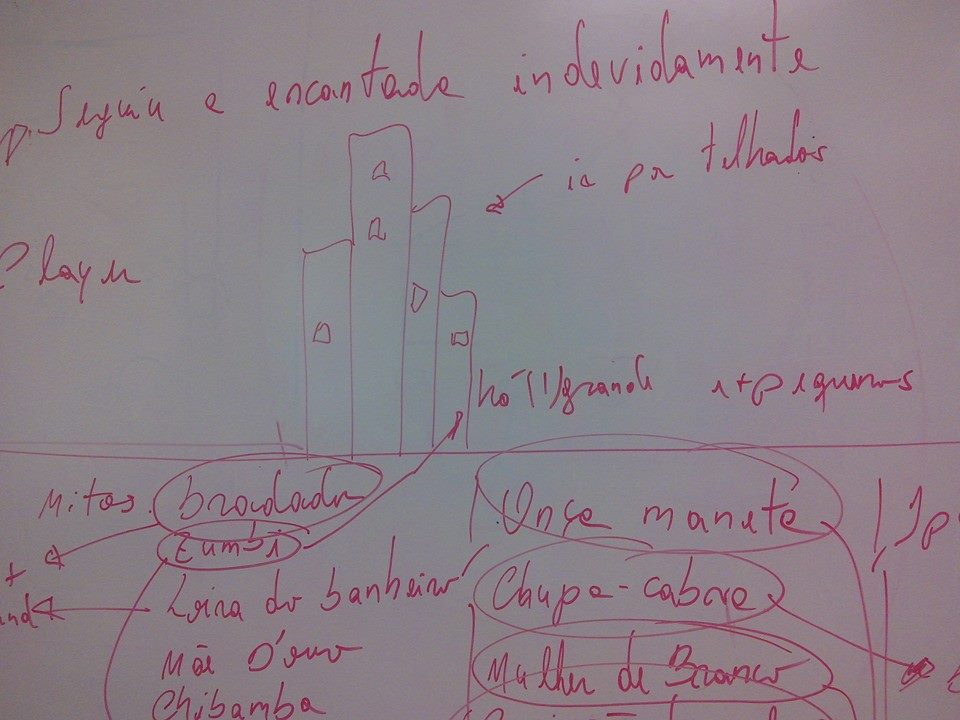 e encantada indevidamente
ir por telhados
Player
grande e + pequenos
Mitos bradador
Zumbi
Loira do banheiro
Mãe D'ouro
Chibamba
Onça maneta
Chupa-cabra
Mulher de Branco